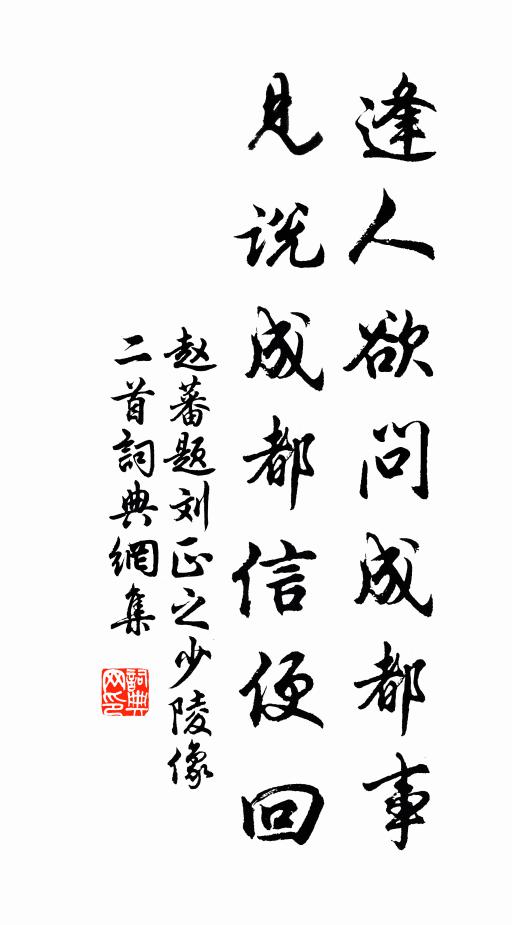 逢人欲问成都事
见说成都信便回
赵蕃题刘正之少陵像
二首詞典網集
詞典
网印